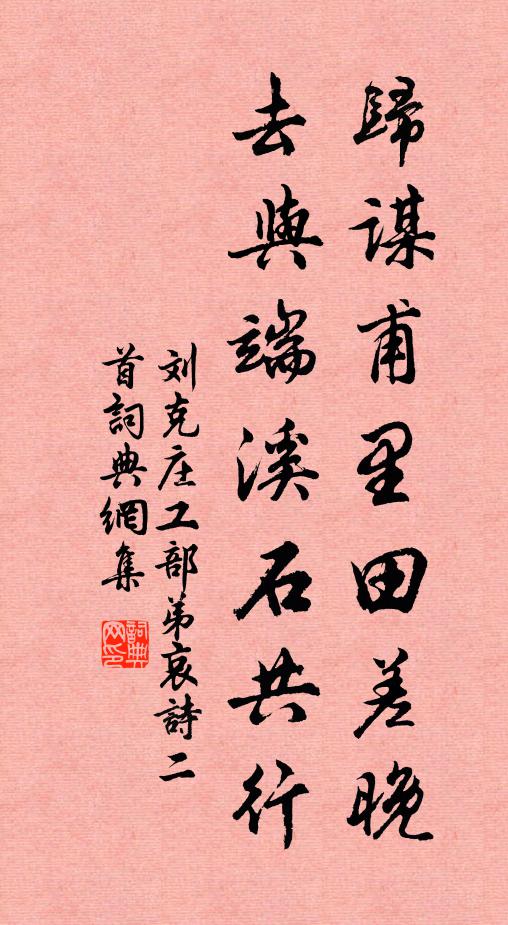 歸謀甫里田差晚
去與端溪石共行
刘克庄工部弟哀詩二
首詞典網集
詞典网印